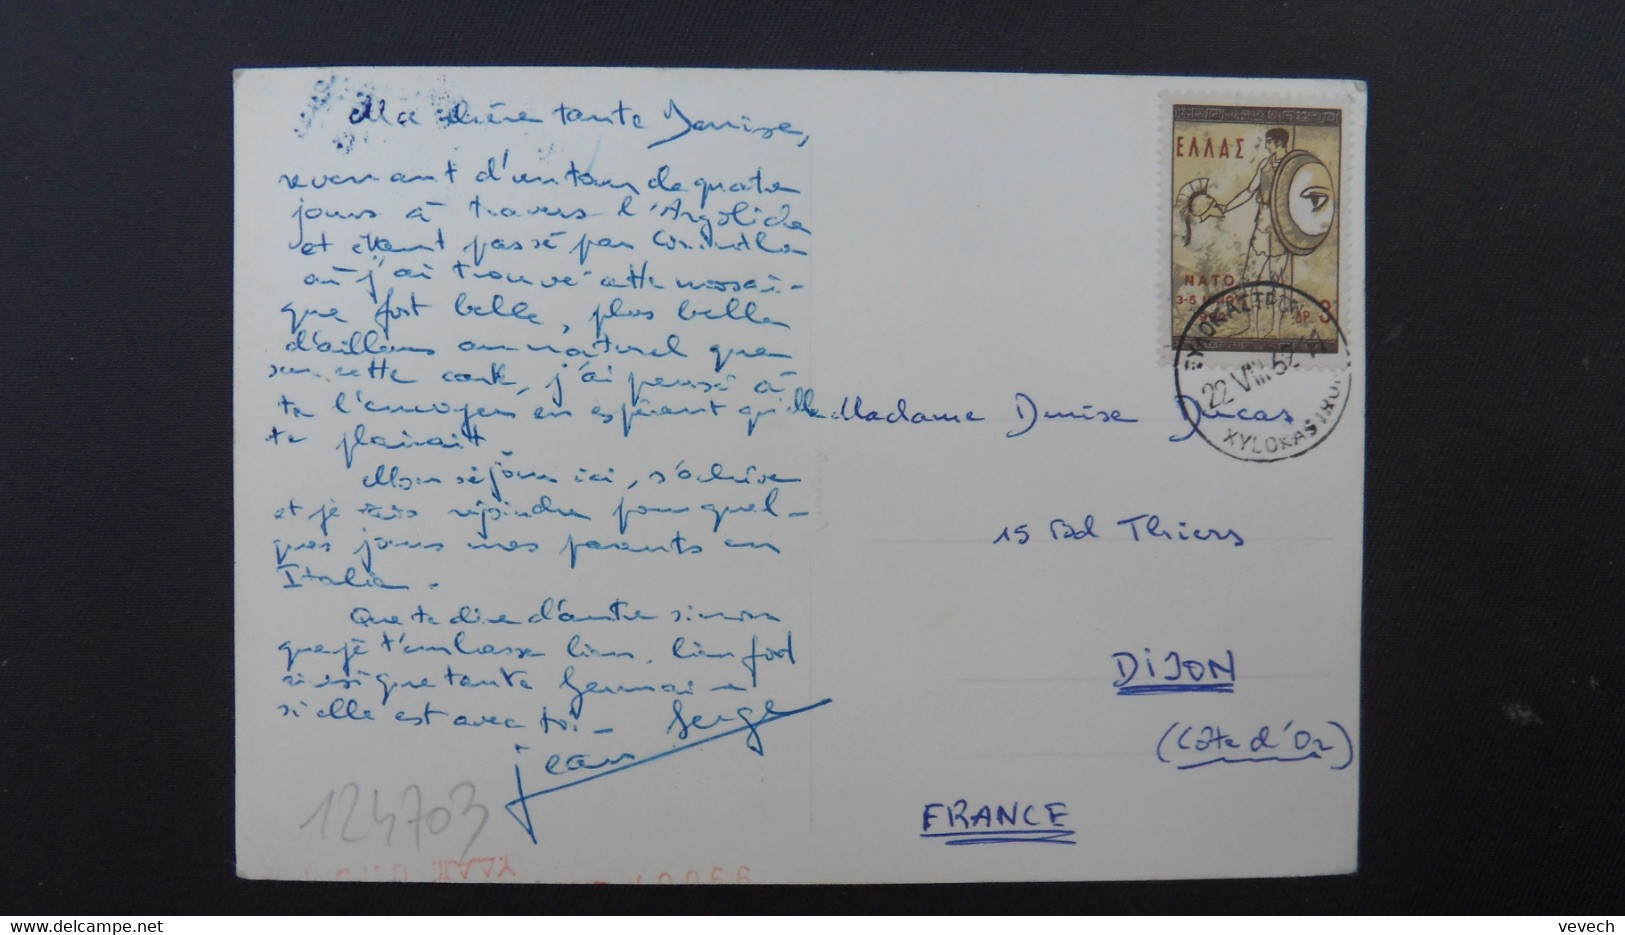 Ma chère tante Denise,
revenant d'un tour de quatre
jours à travers l'Argolide
et étant passé par Corinthe
où j'ai trouvé cette mosaï-
que fort belle, plus belle
d'ailleurs au naturel que
sur cette carte, j'ai pensé à
te l'envoyer en espérant qu'elle
te plairait
Mon séjour ici, s'achève
et je vais rejoindre pour quel-
ques jours mes parents en
Italie.
Que te dire d'autre sinon
que je t'embrasse bien, bien fort
ainsi que tante Germaine
si elle est avec toi -
Jean Serge
124703
ΕΛΛΑΣ
NATO
3-5
ΔΡ. 3
22 VIII 62 17
XYLOKASTRON
Madame Denise Ducas
15 Bd Thiers
DIJON
(Côte d'Or)
FRANCE
vevech